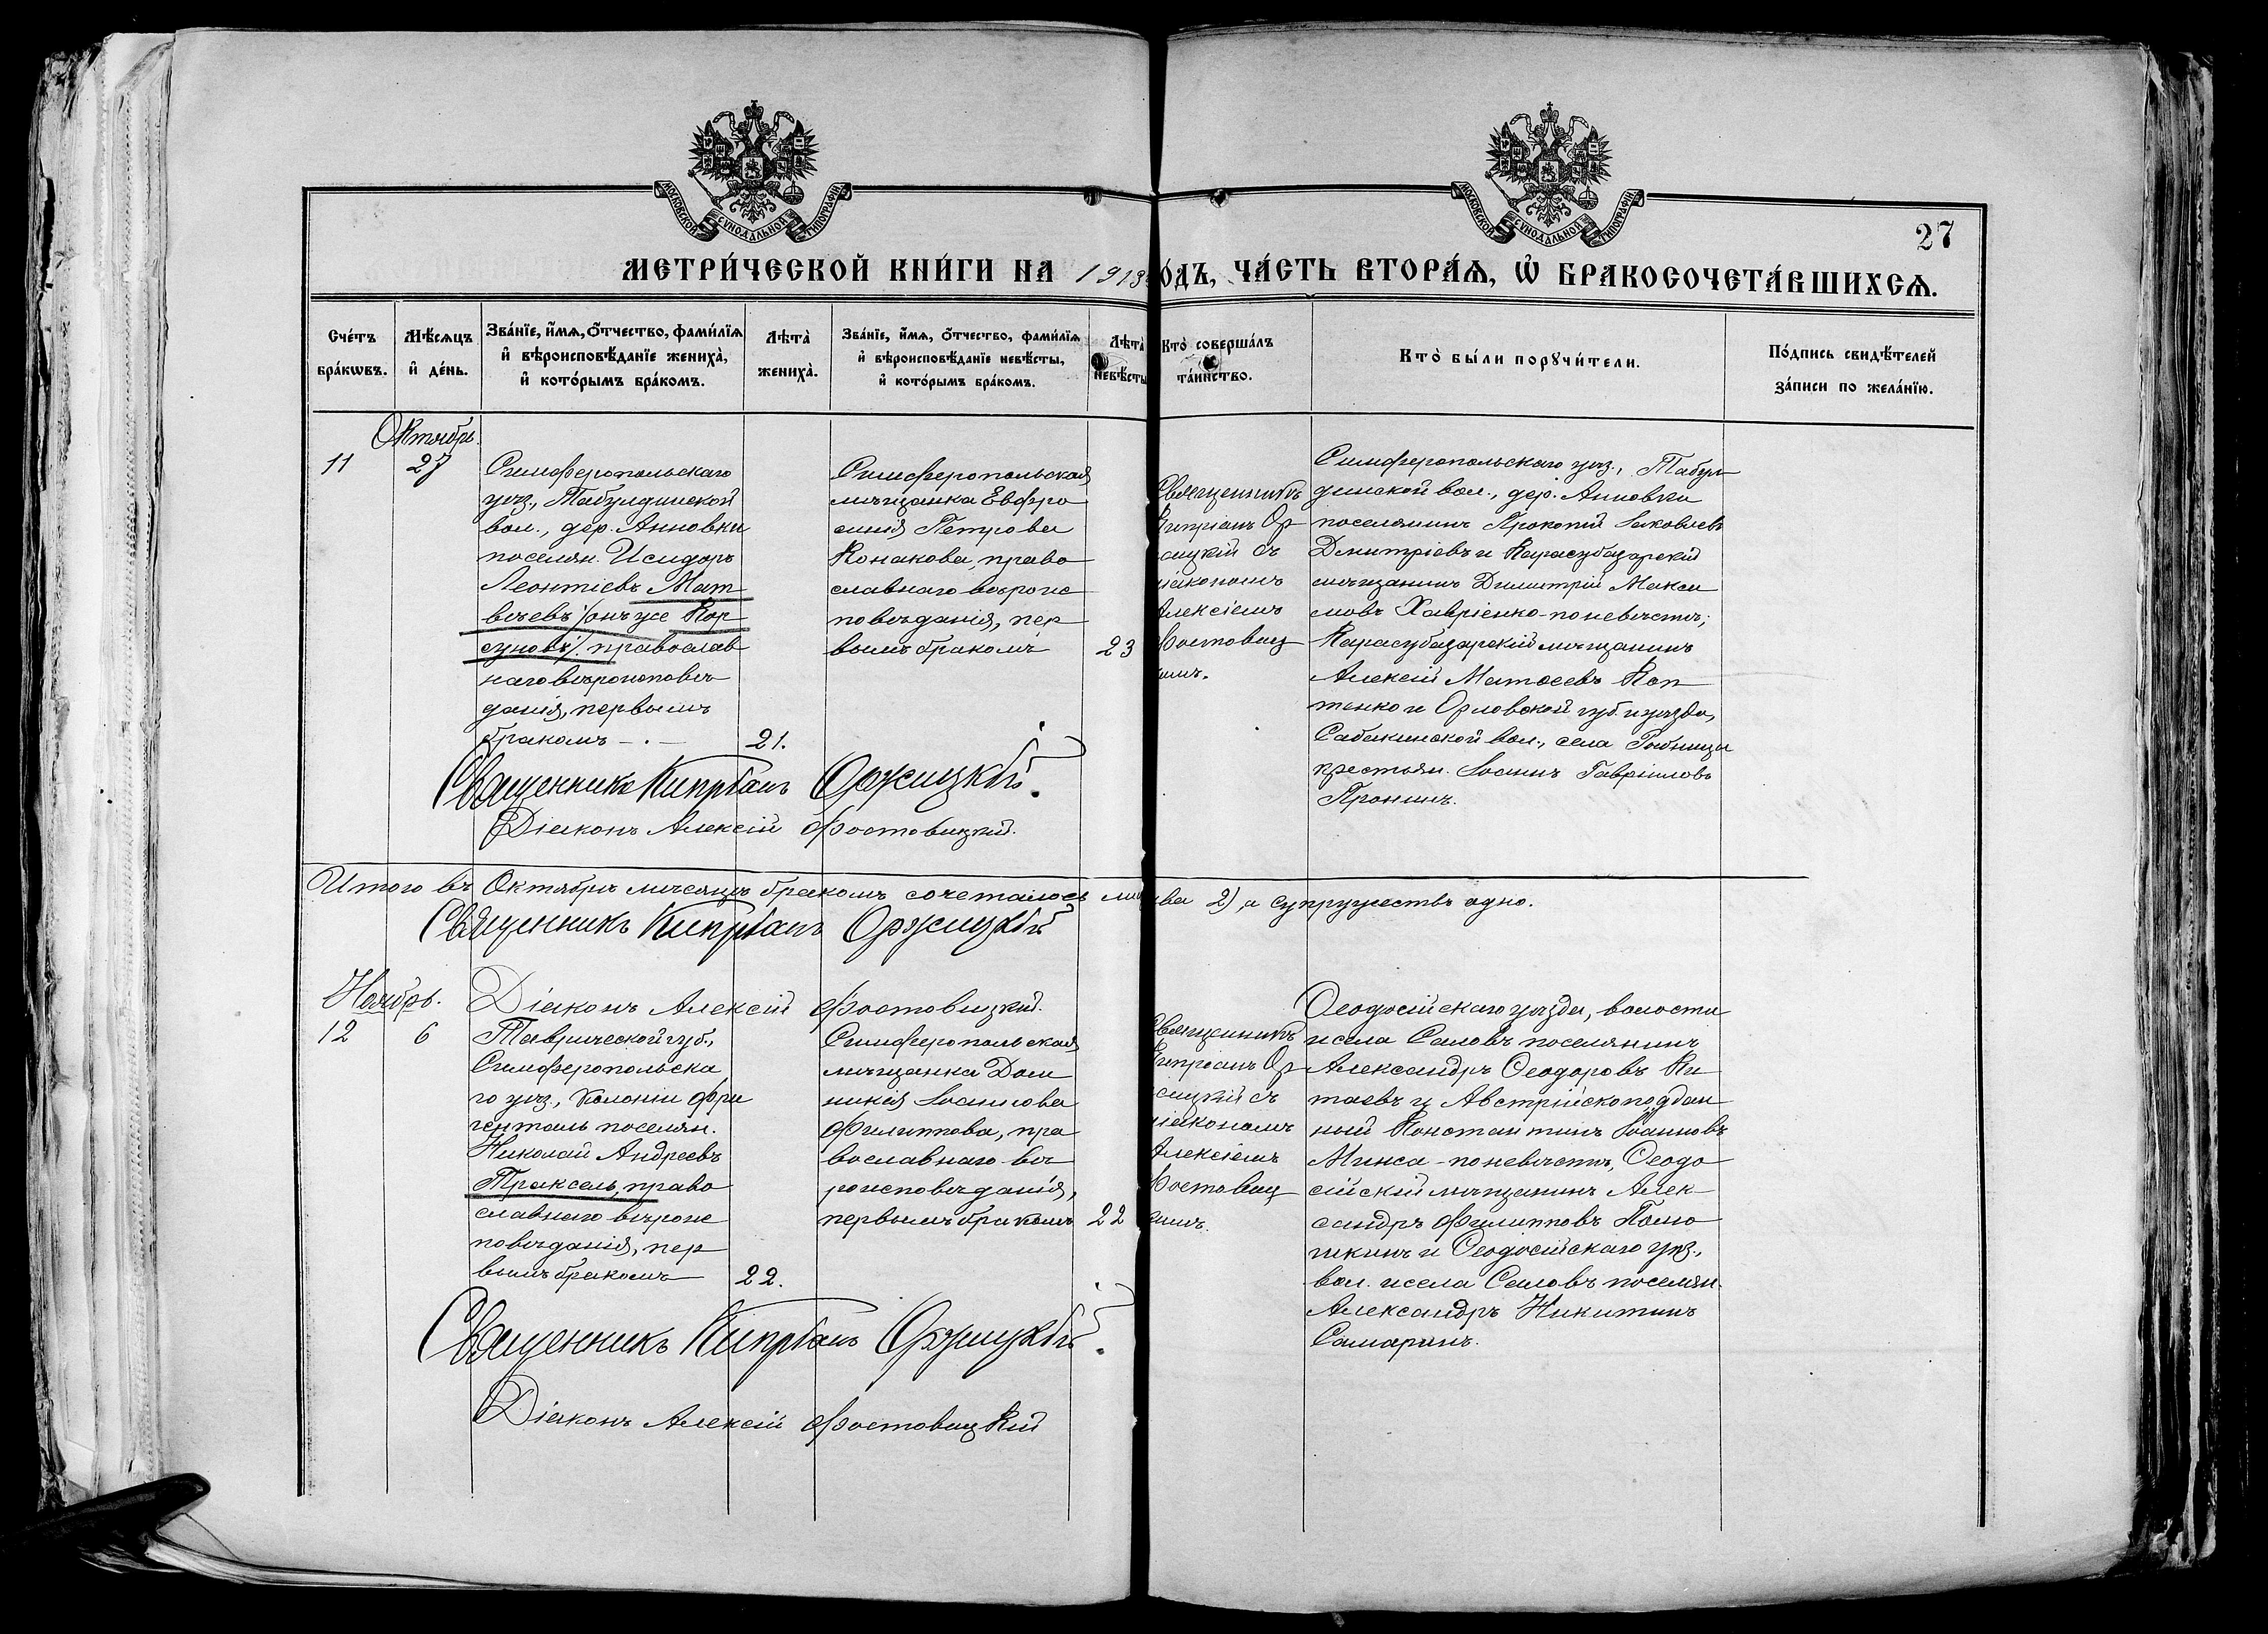 МОСКОВСКОЙ СѴНОДАЛЬНОЙ ТИПОГРАФІИ
МОСКОВСКОЙ СѴНОДАЛЬНОЙ ТИПОГРАФІИ
27
МЕТРИ́ЧЕСКОЙ КНИ́ГИ НА 1913 ГО́ДЪ, ЧА́СТЬ ВТОРА́Ѧ, Ѡ҆ БРАКОСОЧЕТА́ВШИХСѦ.
Сче́тъ
бра́кѡвъ.
Мѣ́сѧцъ
и҆ де́нь.
Зва́нїе, и҆́мѧ, ѻ҆́тчество, фами́лїѧ
и҆ вѣроисповѣ́данїе жениха̀,
и҆ кото́рымъ бра́комъ.
Лѣта̀
жениха̀.
Зва́нїе, и҆́мѧ, ѻ҆́тчество, фами́лїѧ
и҆ вѣроисповѣ́данїе невѣ́сты,
и҆ кото́рымъ бра́комъ.
Лѣта̀
невѣ́сты
Кто̀ соверша́лъ
та́инство.
Кто̀ бы́ли порꙋчи́тели.
По́дпись свидѣ́телей
за́писи по жела́нїю.
Октябрь.
11
27
Симферопольскаго
уѣз., Табулдинской
вол., дер. Анновки
поселян. Исидоръ
Леонтіевъ Мат
вѣевъ /онъ же Кор
суновъ/. православ
наго вѣроисповѣ
данія, первымъ
бракомъ — . —
21.
Симферопольская
мѣщанка Евфро
синія Петрова
Конакова, право
славнаго вѣроис
повѣданія, пер
вымъ бракомъ
23
Священникъ
Кипріанъ Ор
жицкій съ
діакономъ
Алексіемъ
Фостовиц
кимъ.
Симферопольскаго уѣз., Табул
динской вол., дер. Анновки
поселянинъ Прокопій Іаковлевъ
Дмитріевъ и Карасубазарскій
мѣщанинъ Димитрій Макси
мовъ Хавріенко - по невѣстѣ;
Карасубазарскій мѣщанинъ
Алексій Матѳеевъ Коп
тенко и Орловской губ. и уѣзда,
Сабакинской вол., села
крестьян. Іоаннъ Гавріиловъ
Пронинъ.
Священникъ Кипріанъ Оржицкій.
Діаконъ Алексій Фостовицкій.
Итого въ Октябрѣ мѣсяцѣ бракомъ сочеталось два 2), а супружествъ одно.
Священникъ Кипріанъ Оржицкій
Діаконъ Алексій Фостовицкій.
Ноябрь.
12
6
Таврической губ.,
Симферопольска
го уѣз., Колоніи Фри
денталь поселян.
Николай Андреевъ
Траксель, право
славнаго вѣроис
повѣданія, пер
вымъ бракомъ
22.
Симферопольская
мѣщанка Дом
никія Іоаннова
Филиппова, пра
вославнаго вѣ
роисповѣданія,
первымъ бракомъ
22
Священникъ
Кипріанъ Ор
жицкій съ
діакономъ
Алексіемъ
Фостовиц
кимъ.
Ѳеодосійскаго уѣзда, волости
и села Саловъ поселянинъ
Александръ Ѳеодоровъ Ки
таевъ и Австрійскоподдан
ный Константинъ Іоанновъ
Минса - по невѣстѣ, Ѳеодо
сійскій мѣщанинъ Алек-
сандръ Филипповъ
и Ѳеодосійскаго уѣз.,
вол. и села Саловъ поселян.
Александръ Никитинъ
Самаринъ.
Священникъ Кипріанъ Оржицкій.
Діаконъ Алексій Фостовицкій